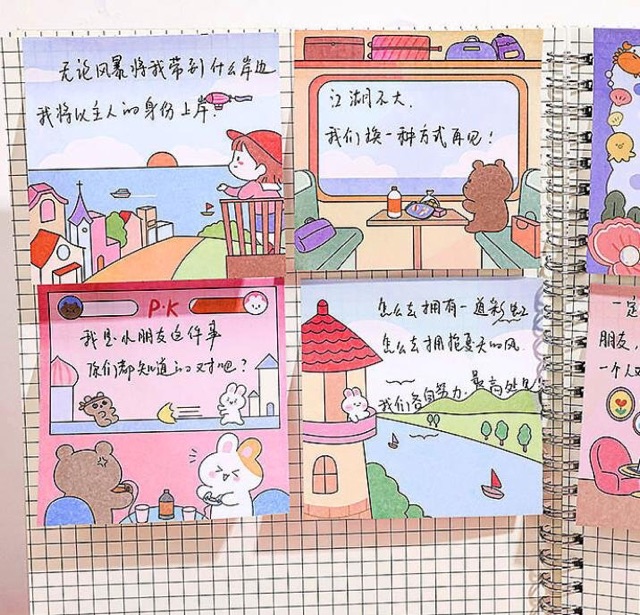 无论风暴将我带到什么岸边
我将以主人的身份上岸.
江湖不大.
我们换一种方式再见!
P·K
我是小朋友这件事
你们都知道的对吧?
怎么去拥有一道彩虹
怎么去拥抱夏天的风.
我们各自努力.最高处见!
一定
朋友,
一个人